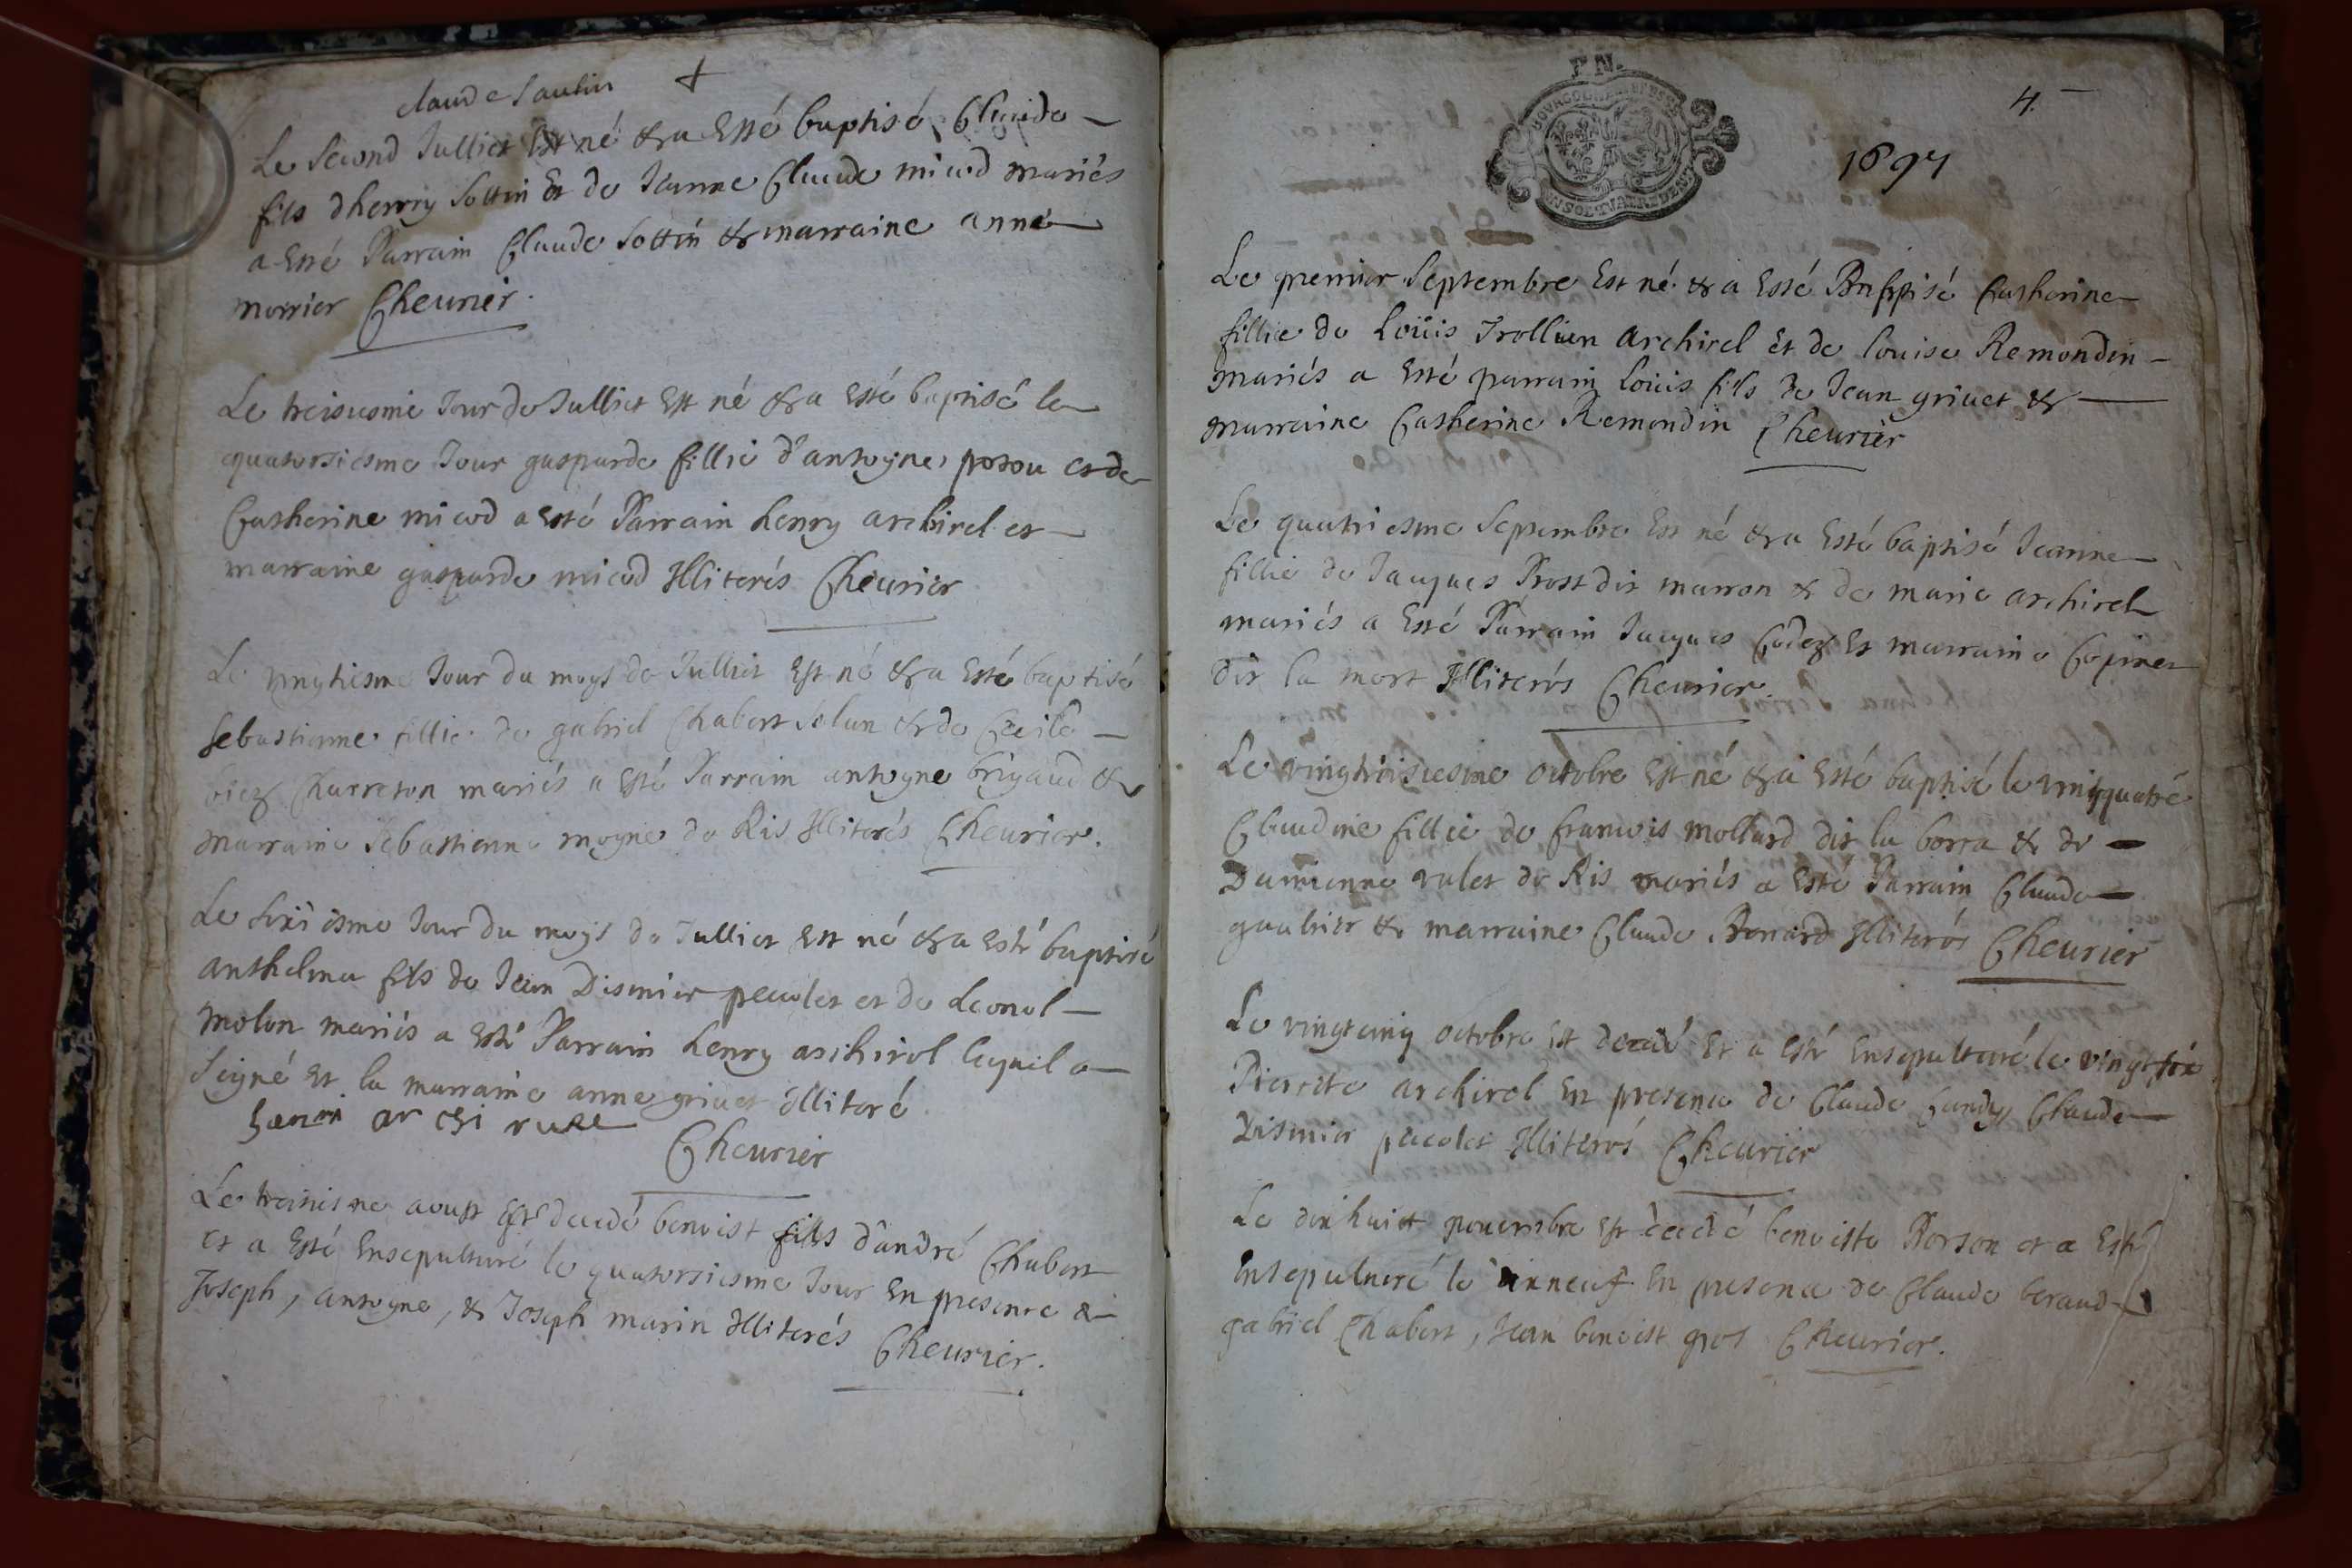 claude Sautin
Le Second Julliet Est né & a Esté baptisé Claude
fils dhenry Sottin Et de Jeanne Claude micod mariés
a Esté Parrain Claude Sottin & marraine anne
morrier Cheurier.
Le treisiesme Jour de Julliet Est né & a Esté baptisé le
quatorsiesme Jour gasparde fillie d'antoyne et de
Catherine micod a Esté Parrain henry archirel et
marraine gasparde micod Illiterés Cheurier
Le vingtiesme Jour du moys de Julliet Est né & a Esté baptisé
Sebastienne fillie de gabriel Chabert & de Cecile
Charreton mariés a Esté Parrain antoyne brigaud &
marraine Sebastienne moyne de Ris Illiterés Cheurier.
Le Jour du moys de Julliet Est né & a Esté baptisé
anthelme fils de Jean Disinier pecolet et de Leonol
molon mariés a Esté Parrain henry archirel lequel a
Signé Et la marraine anne griuet illiteré
Cheurier
Le treisiesme aoust Est decedé benoist fils d'andré Chabert
et a Esté Ensepulturé le quatorsiesme Jour En presence de
Joseph, antoyne, & Joseph marin Illiterés Cheurier.
F.N.
4.
1697
Le premier Septembre Est né & a Esté Baptisé Catherine
fillie de Loüis Trollien archirel Et de louise Remondin
mariés a Esté parrain loüis fils de Jean griuet &
marraine Catherine Remondin Cheurier
Le quatriesme Septembre Est né & a Esté baptisé Jeanne
fillie de Jacques Prost dit marron & de marie archirel
mariés a Esté Parrain Jacques Et marraine
dit la mort Illiterés Cheurier.
Le vingtroisiesme octobre Est né & a Esté baptisé le vingtquatre
Claudine fillie de francois mollard dit la borra & de
Damienne valet de Ris mariés a Esté Parrain Claude
gaultier & marraine Claude Bonard Illiterés Cheurier
Le vingtcinq octobre Est decedé Et a Esté Ensepulturé le vingtsix
Pierrete archirel En presence de Claude Claude
Disinier pecolet Illiterés Cheurier
Le dixhuict nouembre Est decedé benoiste et a Esté
Ensepulturé le dixneuf En presence de Claude beraud
gabriel Chabert, Jean benoist gros Cheurier.